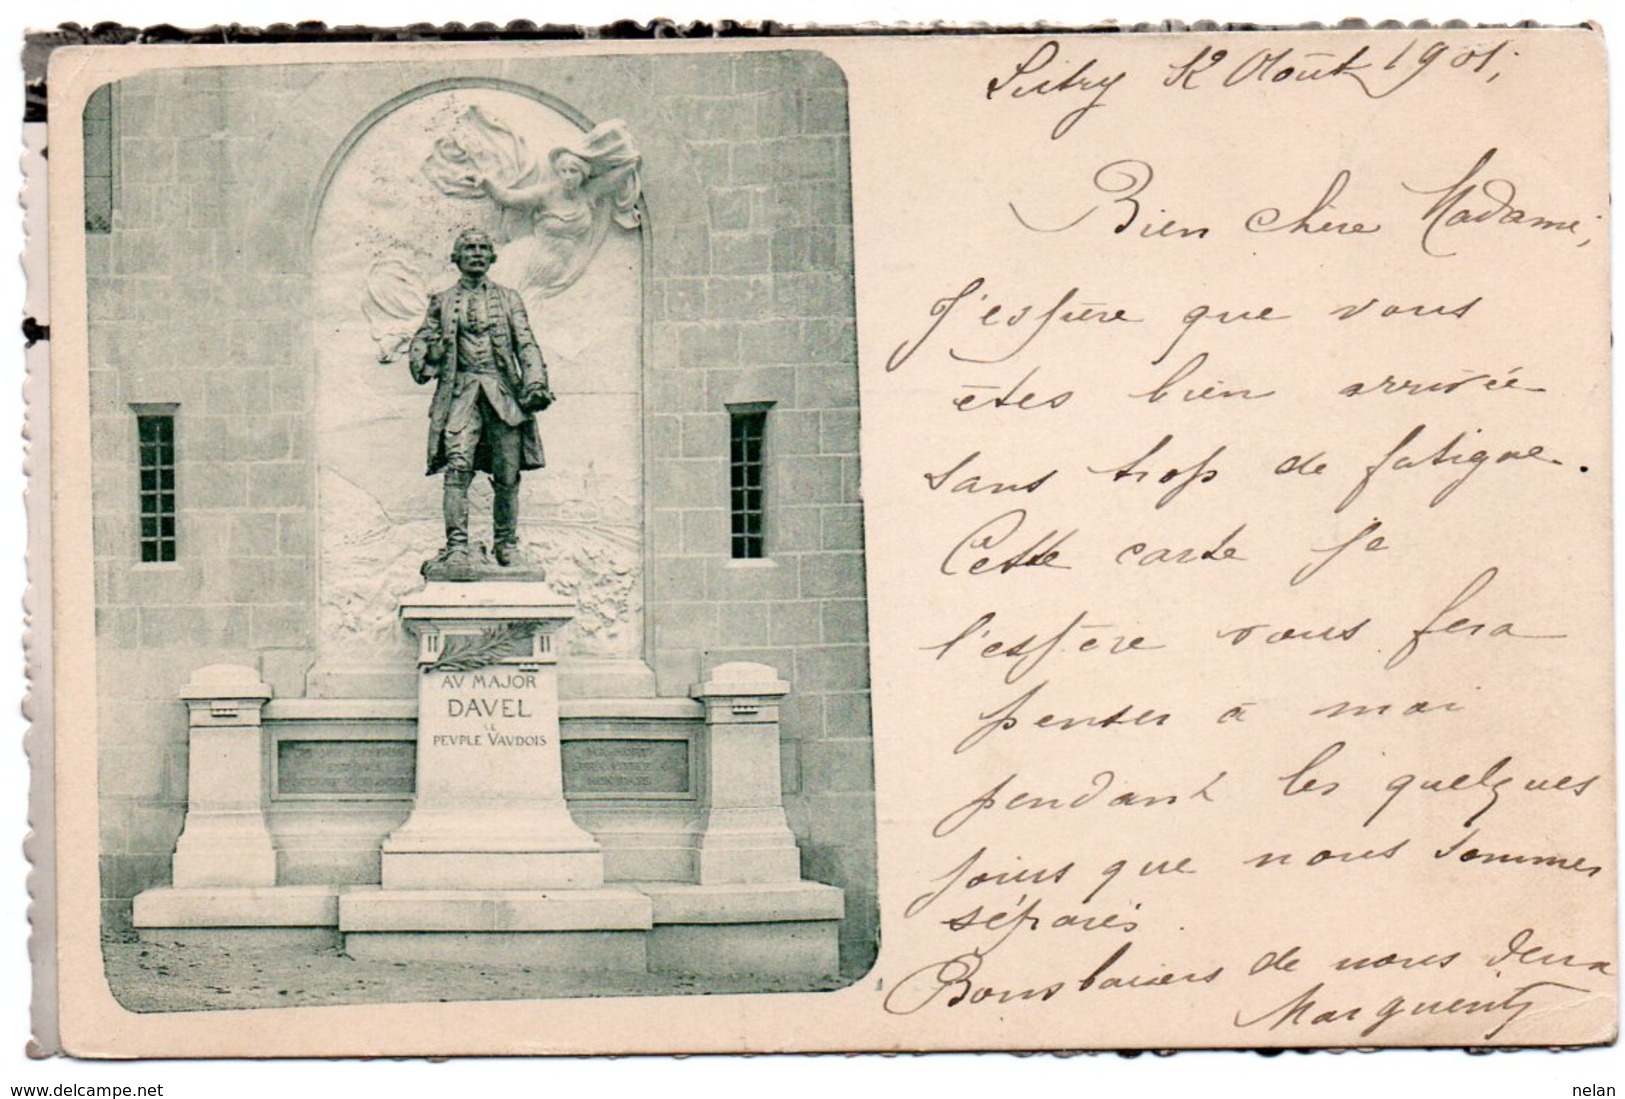 AV MAJOR
DAVEL
LE
PEVPLE VAVDOIS
Lutry 12 Août 1901;
Bien chère Madame,
J'espère que vous
êtes bien arrivée
sans trop de fatigue.
Cette carte je
l'espère vous fera
penser à moi
pendant les quelques
jours que nous sommes
séparés.
Bons baisers de nous deux
www.delcampe.net
nelan